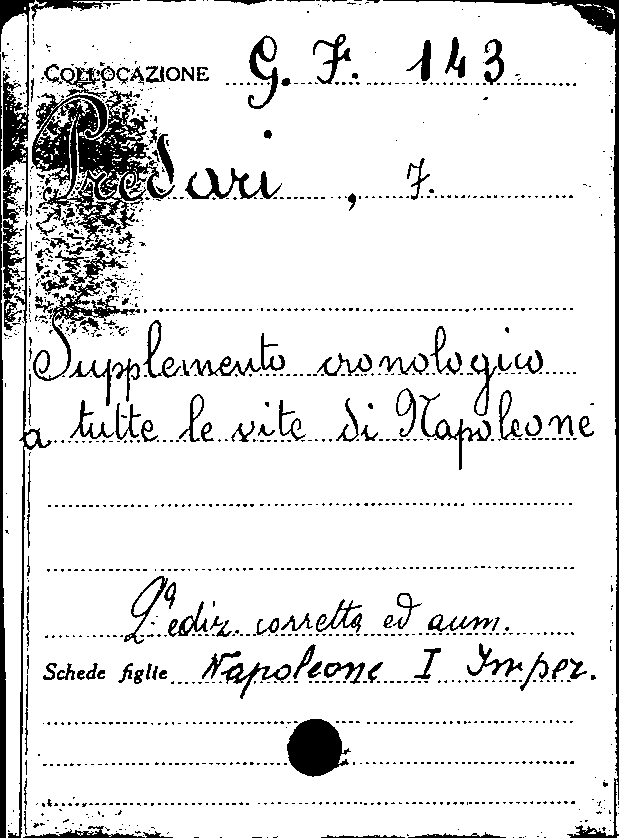 COLLOCAZIONE G. F. 143
Predari, F.
Supplemento cronologico
a tutte le vite di Napoleone
2ª ediz. corretta ed aum.
Schede figlie Napoleone I Imper.